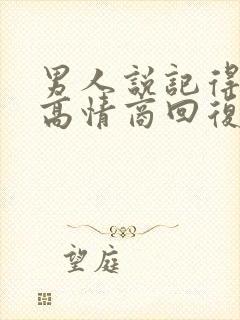 男人說記得
高情商回復
望庭